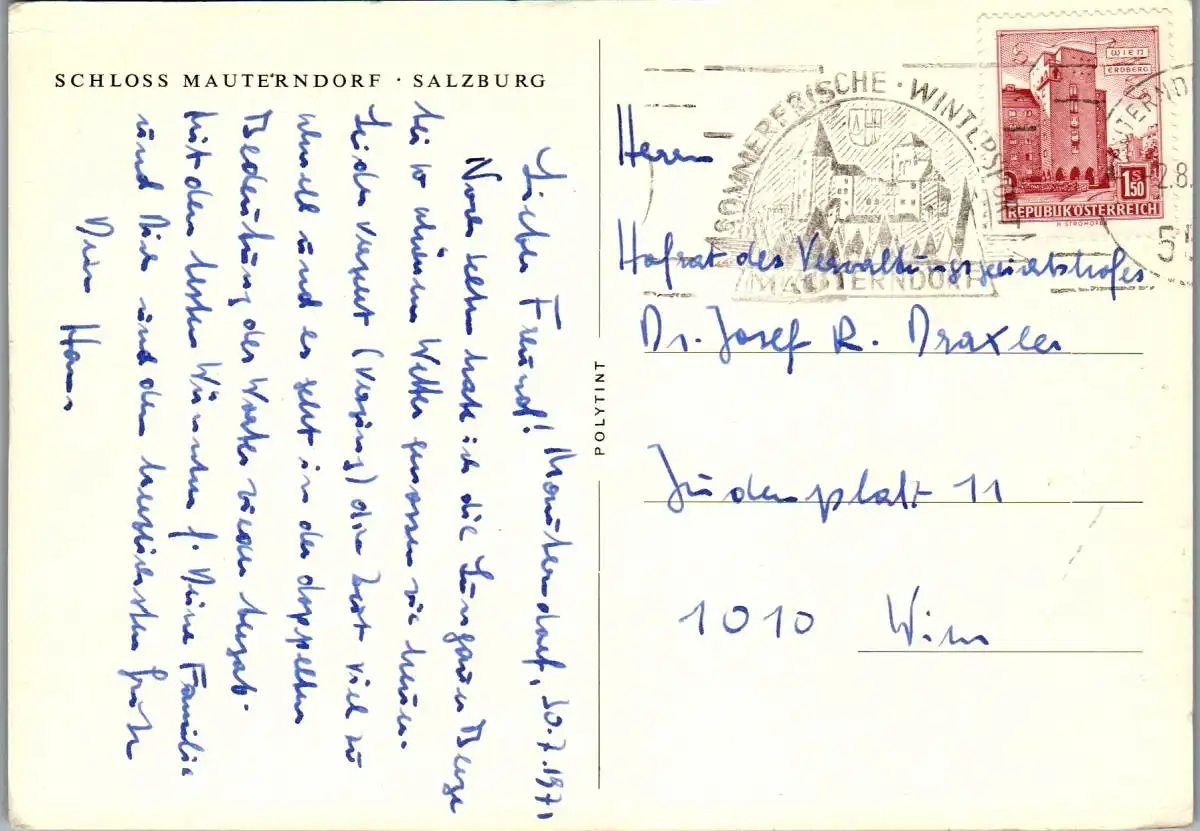 SCHLOSS MAUTERNDORF · SALZBURG
Mauterndorf, 30.7.1971
Lieber Freund!
Noch selten habe ich die Lungauer Berge
bei so schönem Wetter genossen wie heuer.
Leider vergeht (vergeht) die Zeit viel zu
schnell und es geht in der doppelten
Bedeutung des Wortes wieder bergab.
Mit den besten Wünschen f. Deine Familie
und Dich und den herzlichsten Grüßen
Dein Hans
POLYTINT
SOMMERFRISCHE · WINTERSPORT
MAUTERNDORF
WIEN
ERDBERG
S
1.50
REPUBLIK ÖSTERREICH
H. STROHOFER
MAUTERND
2.8.
Herrn
Hofrat des Verwaltungsgerichtshofes
Dr. Josef R. Draxler
Judenplatz 11
1010 Wien